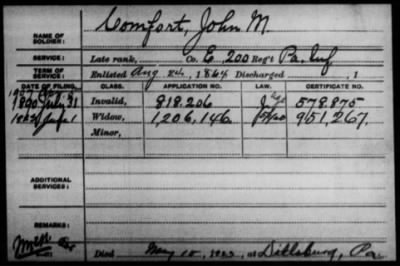 Comfort, John M.
NAME OF SOLDIER:
SERVICE: Late rank, Co. E, 200 Reg't Pa. Inf
TERM OF SERVICE: Enlisted Aug 1864 Discharged , 1
DATE OF FILING. CLASS. APPLICATION NO. LAW. CERTIFICATE NO.
1890 July 31 Invalid, 818,206 578,875
Widow, 1,206,146 951,267.
Minor,
ADDITIONAL SERVICES:
REMARKS:
Died May 15, at Dillsburg, Pa